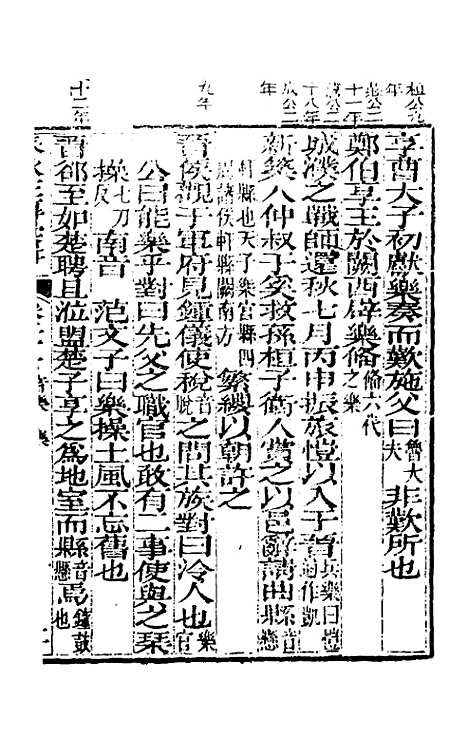 桓公九年
享曹大子初獻樂奏而歎施父曰魯大夫非歎所也
莊公二十一年
鄭伯享王於闕西辟樂備備六代之樂
僖公二十八年
城濮之戰師還秋七月丙申振旅愷以入于晉兵樂曰愷
成公二年
新築人仲叔于奚救孫桓子衛人賞之以邑辭請曲縣音懸
軒縣也天子樂宮縣四周諸侯軒縣闕南方繁纓以朝許之
九年
晉侯觀于軍府見鍾儀使稅音脫之問其族對曰泠人也樂官
公曰能樂乎對曰先父之職官也敢有二事使與之琴
操七刀反南音范文子曰樂操土風不忘舊也
十二年
晉郤至如楚聘且涖盟楚子享之爲地室而縣音懸焉鐘鼓也